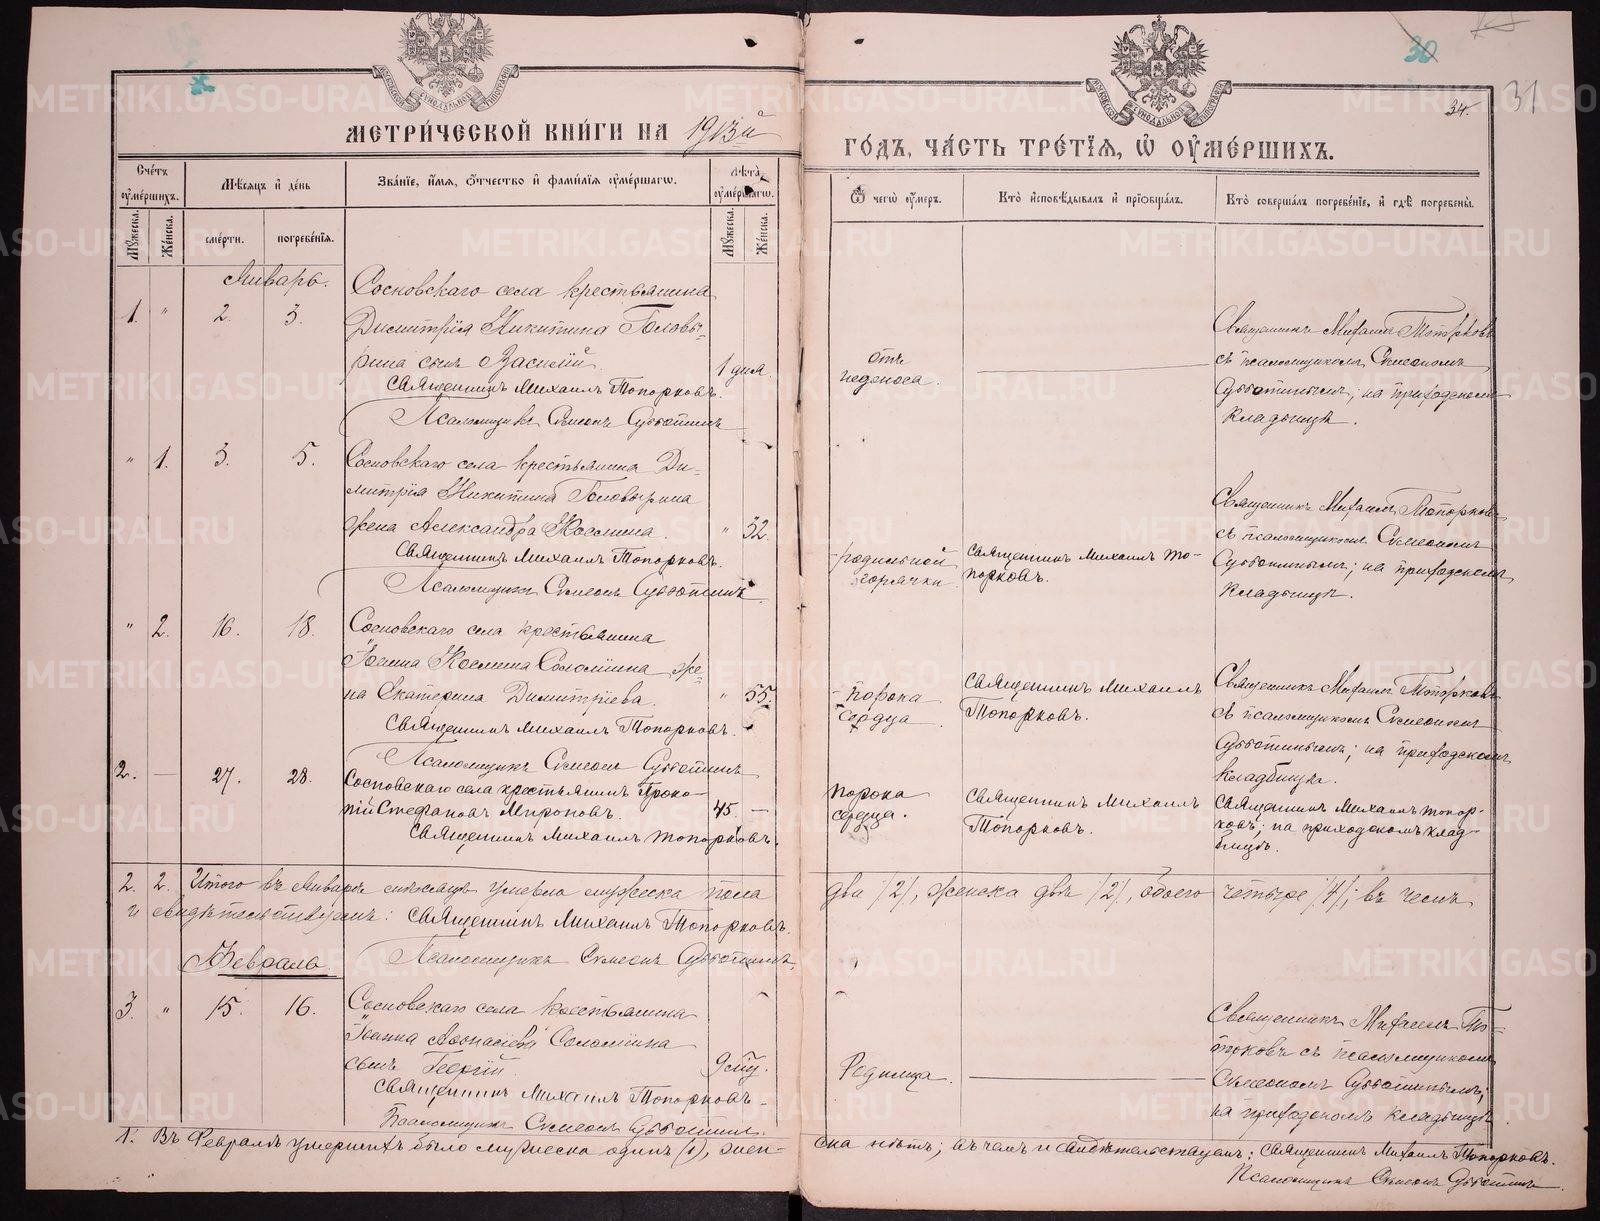 30
31
34.
МЕТРИ́ЧЕСКОЙ КНИ́ГИ НА 1913й
ГО́ДЪ, ЧА́СТЬ ТРЕ́ТІЯ, Ѡ ОУМЕ́РШИХЪ.
Сче́тъ оуме́ршихъ.
Мѣ́сяцъ и де́нь
Зва́ніе, и́мя, о́тчество и фами́лія оуме́ршагѡ.
Лѣ́та оуме́ршагѡ.
Мꙋ́жеска.
Же́нска.
сме́рти.
погребе́нїя.
Мꙋ́жеска.
Же́нска.
Ѿ чегѡ̀ оу́меръ.
Кто̀ и҆сповѣ́дывалъ и҆ прїѡбща́лъ.
Кто̀ соверша́лъ погребе́нїе, и҆ гдѣ̀ погребены̀.
Январь.
1. " 2. 3.
Сосновскаго села крестьянина
Димитрія Никитина Головы-
рина сынъ Василій.
1 дня.
Священникъ Михаилъ Топорковъ.
Псаломщикъ Сѵмеонъ Субботинъ
отъ
недоноса.
Священникъ Михаилъ Топорковъ
съ псаломщикомъ Сѵмеономъ
Субботинымъ; на приходскомъ
кладбищѣ.
" 1. 3. 5.
Сосновскаго села крестьянина Ди-
митрія Никитина Головырина
жена Александра Космина.
" 32.
Священникъ Михаилъ Топорковъ.
Псаломщикъ Сѵмеонъ Субботинъ.
родильной
горячки
Священникъ Михаилъ То-
порковъ.
Священникъ Михаилъ Топорковъ
съ псаломщикомъ Сѵмеономъ
Субботинымъ; на приходскомъ
кладбищѣ.
" 2. 16. 18.
Сосновскаго села крестьянина
Іоанна Космина Соломіина же-
на Екатерина Димитріева.
" 55.
Священникъ Михаилъ Топорковъ.
Псаломщикъ Сѵмеонъ Субботинъ
порока
сердца
Священникъ Михаилъ
Топорковъ.
Священникъ Михаилъ Топорковъ
съ псаломщикомъ Сѵмеономъ
Субботинымъ; на приходскомъ
кладбищѣ.
2. — 27. 28.
Сосновскаго села крестьянинъ Проко-
пій Стефановъ Мироновъ.
45 —
Священникъ Михаилъ Топорковъ.
Порока
сердца.
Священникъ Михаилъ
Топорковъ.
Священникъ Михаилъ Топор-
ковъ; на приходскомъ клад-
бищѣ.
2. 2. Итого въ Январѣ мѣсяцѣ умерло мужеска пола
два /2/, женска двѣ /2/, обоего четыре /4/; въ чемъ
и свидѣтельствуемъ: Священникъ Михаилъ Топорковъ.
Псаломщикъ Сѵмеонъ Субботинъ.
Февраль
3. " 15. 16.
Сосновскаго села крестьянина
Іоанна Аѳонасіева Соломіина
сынъ Георгій.
9 мѣс.
Священникъ Михаилъ Топорковъ.
Псаломщикъ Сѵмеонъ Субботинъ.
Родимца.
Священникъ Михаилъ То-
порковъ съ псаломщикомъ
Сѵмеономъ Субботинымъ;
на приходскомъ кладбищѣ.
1. Въ Февралѣ умершихъ было мужеска одинъ (1), жен-
ска нѣтъ; въ чемъ и свидѣтельствуемъ: Священникъ Михаилъ Топорковъ.
Псаломщикъ Сѵмеонъ Субботинъ.
METRIKI.GASO-URAL.RU